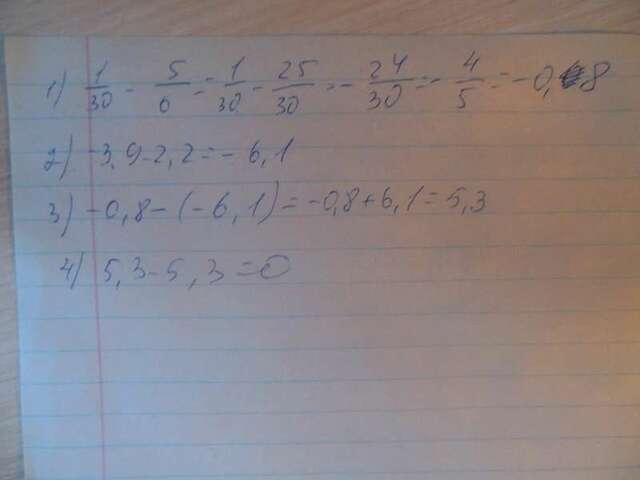 1) 1/30 - 5/6 = 1/30 - 25/30 = -24/30 = -4/5 = -0,8
2) -3,9-2,2=-6,1
3) -0,8-(-6,1)=-0,8+6,1=5,3
4) 5,3-5,3=0